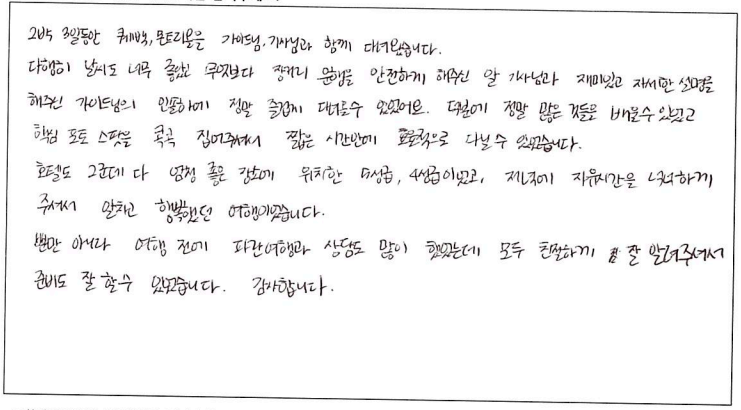 2박 3일동안 퀘백, 몬트리올을 가이드님, 기사님과 함께 다녀왔습니다.
다행히 날씨도 너무 좋았고 무엇보다 장거리 운행을 안전하게 해주신 알 기사님과 재미있고 자세한 설명을
해주신 가이드님의 인솔하에 정말 즐겁게 다녀올수 있었어요. 덕분에 정말 많은 것들을 배울수 있었고
핵심 포토 스팟을 콕콕 집어주셔서 짧은 시간안에 효율적으로 다닐 수 있었습니다.
호텔도 2군데 다 엄청 좋은 장소에 위치한 5성급, 4성급이었고, 저녁에 자유시간을 넉넉하게
주셔서 알차고 행복했던 여행이었습니다.
뿐만 아니라 여행 전에 파란여행과 상담도 많이 했었는데 모두 친절하게 잘 알려주셔서
준비도 잘 할수 있었습니다. 감사합니다.